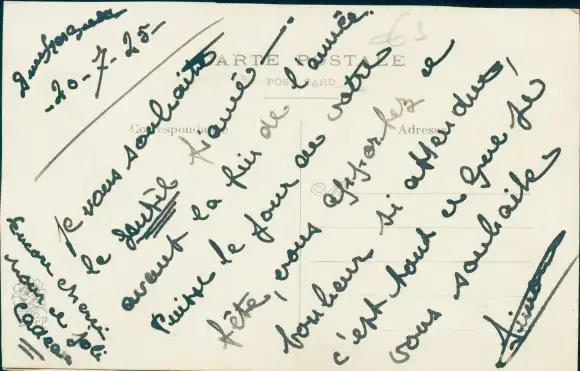 20-7-25-
CARTE POSTALE
POST CARD
Correspondance
Adresse
Je vous souhaite
le gentil fiancé
avant la fin de l'année.
Puisse le jour de votre
fête, vous apporter ce
bonheur si attendu,
c'est tout ce que je
vous souhaite
Simon
Encore merci
pour ce joli
cadeau